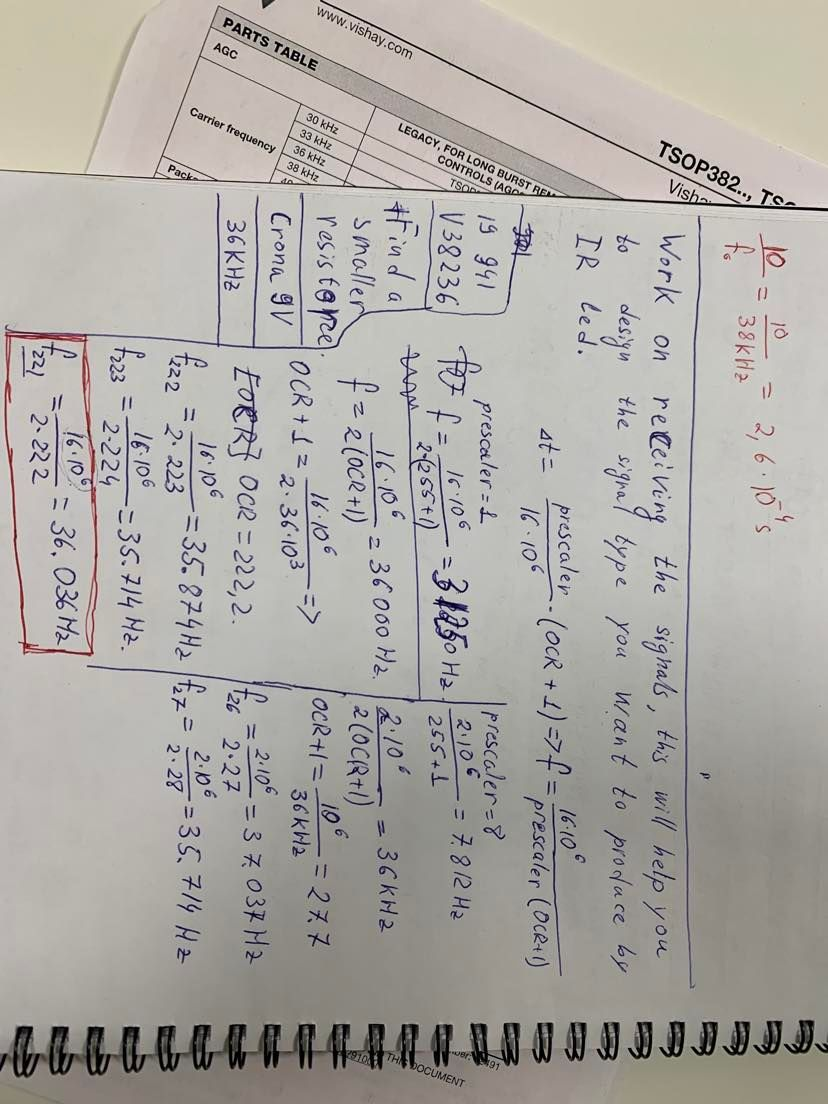 www.vishay.com
TSOP382..,
PARTS TABLE
AGC
LEGACY, FOR LONG BURST REM
CONTROLS (AGC
Carrier frequency
30 kHz
33 kHz
36 kHz
38 kHz
10/f₀ = 10/38kHz = 2,6·10⁻⁴ s
Work on receiving the signals, this will help you
to design the signal type you want to produce by
IR led.
Δt = prescaler/16·10⁶ · (OCR+1) => f = 16·10⁶/prescaler(OCR+1)
19 941
V38236
Find a
smaller
resistance.
Crona 9V
36KHz
prescaler=1
f = 16·10⁶/2(255+1) = 31250Hz
f = 16·10⁶/2(OCR+1) = 36000Hz.
OCR+1 = 16·10⁶/2·36·10³ =>
OCR=222,2.
f₂₂₂ = 16·10⁶/2·223 = 35.874Hz
f₂₂₃ = 16·10⁶/2·224 = 35.714Hz.
f₂₂₁ = 16·10⁶/2·222 = 36.036Hz
prescaler=8
2·10⁶/255+1 = 7.812Hz
2·10⁶/2(OCR+1) = 36kHz
OCR+1 = 10⁶/36kHz = 27.7
f₂₆ = 2·10⁶/2·27 = 37.037Hz
f₂₇ = 2·10⁶/2·28 = 35.714Hz
THIS DOCUMENT